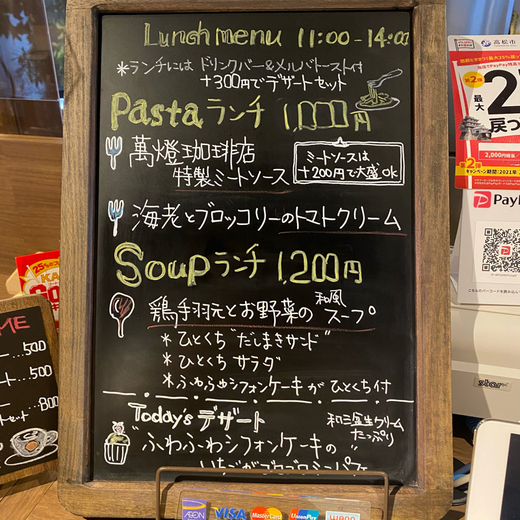 Lunch menu 11:00-14:00
*ランチには ドリンクバー&メルバトースト付
+300円でデザートセット
Pastaランチ 1,000円
萬燈珈琲店
特製ミートソース
ミートソースは
+200円で大盛OK
海老とブロッコリーのトマトクリーム
Soupランチ 1,200円
鶏手羽元とお野菜の和風スープ
*ひとくち"だしまきサンド"
*ひとくちサラダ
*ふわふわシフォンケーキがひとくち付
Today's デザート
和三盆生クリーム
たっぷり
"ふわふわシフォンケーキの
高松市
最大
2
戻っ
第2弾
2,000円相当
PayP
500
500
800
ME
25%
star
AEON
VISA
MasterCard
UnionPay